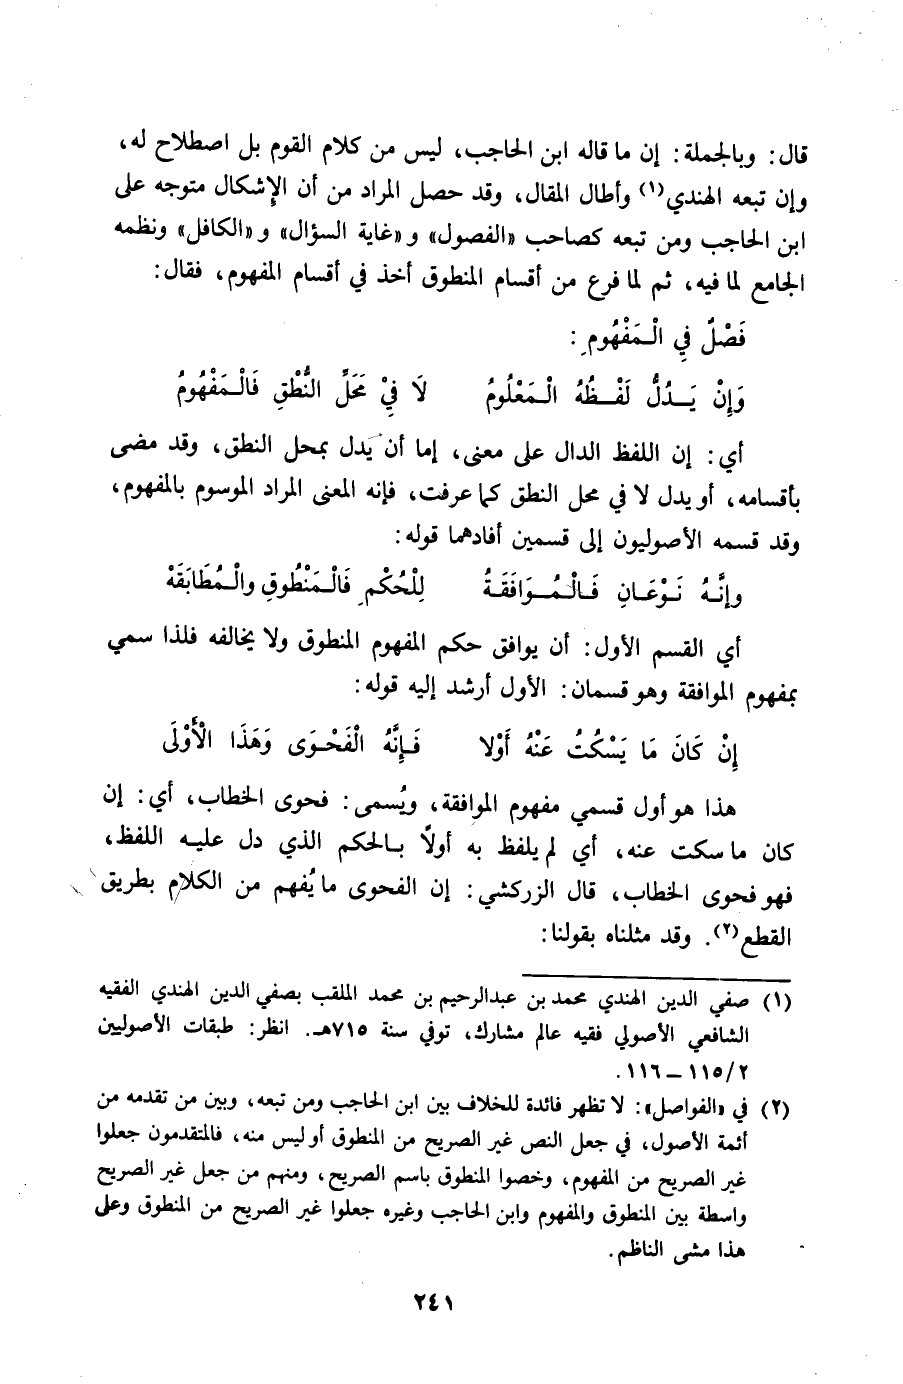 قال: وبالجملة: إن ما قاله ابن الحاجب، ليس من كلام القوم بل اصطلاح له،
وإن تبعه الهندي(١) وأطال المقال، وقد حصل المراد من أن الإشكال متوجه على
ابن الحاجب ومن تبعه كصاحب «الفصول» و«غاية السؤال» و«الكافل» ونظمه
الجامع لما فيه، ثم لما فرع من أقسام المنطوق أخذ في أقسام المفهوم، فقال:
فَصْلٌ فِي الْمَفْهُومِ:
وَإِنْ يَدُلُّ لَفْظُهُ الْمَعْلُومُ لَا فِيْ مَحَلِّ النُّطْقِ فَالْمَفْهُومُ
أي: إن اللفظ الدال على معنى، إما أن يدل بمحل النطق، وقد مضى
بأقسامه، أو يدل لا في محل النطق كما عرفت، فإنه المعنى المراد الموسوم بالمفهوم،
وقد قسمه الأصوليون إلى قسمين أفادهما قوله:
وإنَّهُ نَوْعَانِ فَالْمُوَافَقَةُ لِلْحُكْمِ فَالْمَنْطُوقِ والْمُطَابَقَهْ
أي القسم الأول: أن يوافق حكم المفهوم المنطوق ولا يخالفه فلذا سمي
بمفهوم الموافقة وهو قسمان: الأول أرشد إليه قوله:
إِنْ كَانَ مَا يَسْكُتُ عَنْهُ أَوْلا فَإِنَّهُ الْفَحْوَى وَهَذَا الْأَوْلَى
هذا هو أول قسمي مفهوم الموافقة، ويُسمى: فحوى الخطاب، أي: إن
كان ما سكت عنه، أي لم يلفظ به أولاً بالحكم الذي دل عليه اللفظ،
فهو فحوى الخطاب، قال الزركشي: إن الفحوى ما يُفهم من الكلام بطريق
القطع(٢). وقد مثلناه بقولنا:
(١) صفي الدين الهندي محمد بن عبدالرحيم بن محمد الملقب بصفي الدين الهندي الفقيه
الشافعي الأصولي فقيه عالم مشارك، توفي سنة ٧١٥هـ. انظر: طبقات الأصوليين
٢/ ١١٥ - ١١٦.
(٢) في «الفواصل»: لا تظهر فائدة للخلاف بين ابن الحاجب ومن تبعه، وبين من تقدمه من
أئمة الأصول، في جعل النص غير الصريح من المنطوق أو ليس منه، فالمتقدمون جعلوا
غير الصريح من المفهوم، وخصوا المنطوق باسم الصريح، ومنهم من جعل غير الصريح
واسطة بين المنطوق والمفهوم وابن الحاجب وغيره جعلوا غير الصريح من المنطوق وعلى
هذا مشى الناظم.
٢٤١